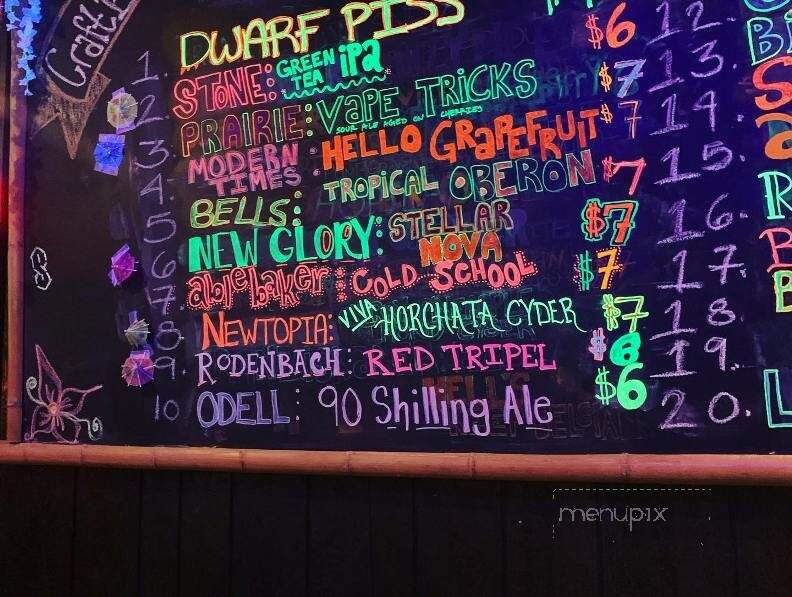 Craft
DWARF PISS
1. STONE: GREEN TEA iPA $6 12.
2. PRAIRIE: VAPE TRiCKS $7 13.
SOUR ALE AGED ON CHERRIES
3. MODERN TIMES: HELLO GRAPEFRUIT $7 14.
4. BELLS: TROPICAL OBERON $7 15.
5. NEW GLORY: STELLAR NOVA $7 16.
6. ablebaker: COLD SCHOOL $7 17.
7. NEWTOPIA: VIVA HORCHATA CYDER $7 18.
8. RODENBACH: RED TRIPEL $6 19.
9.
10 ODELL: 90 Shilling Ale $6 20.
menupix